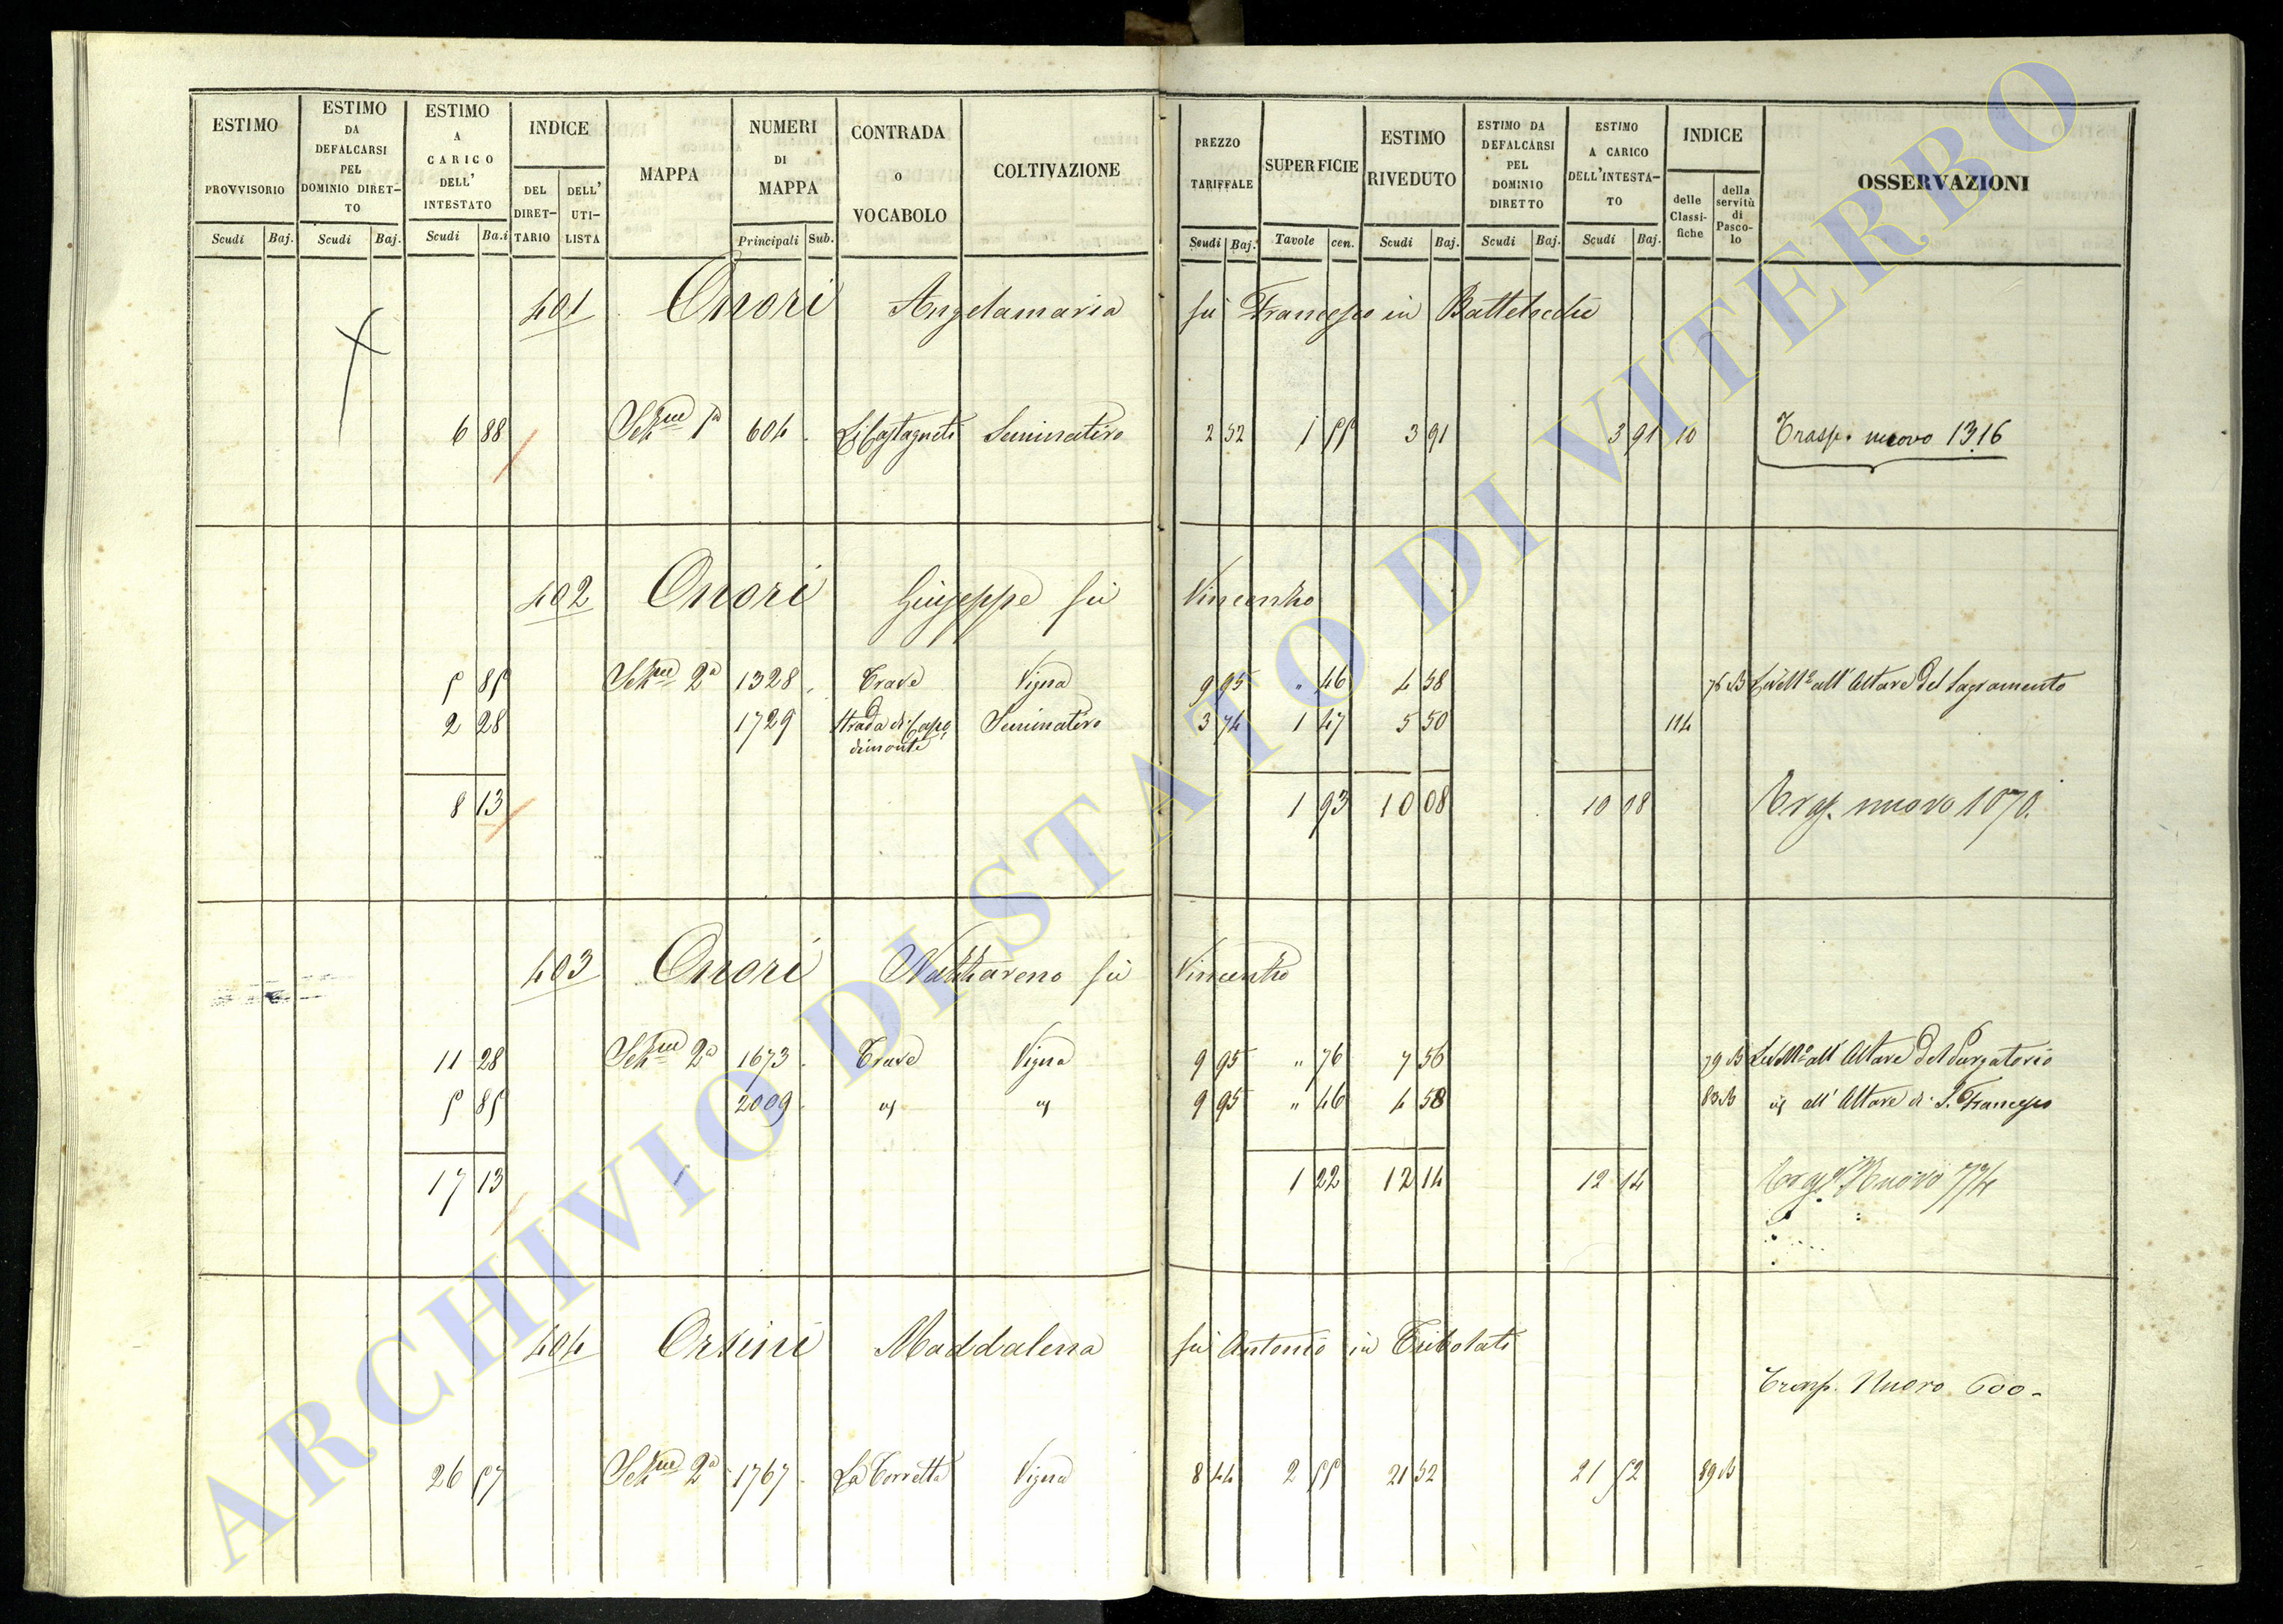 ESTIMO PROVVISORIO ESTIMO DA DEFALCARSI PEL DOMINIO DIRETTO ESTIMO A CARICO DELL' INTESTATO INDICE MAPPA NUMERI DI MAPPA CONTRADA O VOCABOLO COLTIVAZIONE PREZZO TARIFFALE SUPERFICIE ESTIMO RIVEDUTO ESTIMO DA DEFALCARSI PEL DOMINIO DIRETTO ESTIMO A CARICO DELL'INTESTATO INDICE OSSERVAZIONI
DEL DIRETTARIO DELL' UTILISTA delle Classifiche della servitù di Pascolo
Scudi Baj. Scudi Baj. Scudi Ba.i Principali Sub. Scudi Baj. Tavole cen. Scudi Baj. Scudi Baj. Scudi Baj.
401 Onori Angelamaria fù Francesco in Battelocchi
6 88 Sezne 1a 604 Li Castagneti Seminativo 2 52 1 55 3 91 3 91 10 Trasp. nuovo 1316
402 Onori Giuseppe fù Vincenzo
5 85 Sezne 2a 1328 Trave Vigna 9 95 " 46 4 58 Livello all' Altare del Sagramento
2 28 1729 Strada di Capodimonte Seminativo 3 74 1 47 5 50 114
8 13 1 93 10 08 10 08 Trasp. nuovo 1070.
403 Onori Nazzareno fù Vincenzo
11 28 Sezne 2a 1673 Trave Vigna 9 95 " 76 7 56 Livello all' Altare del Purgatorio
5 85 2009 9 95 " 46 4 58 all' Altare di S. Francesco
17 13 1 22 12 14 12 14 Nuovo 774
404 Orsini Maddalena fù Antonio in Tribolati
Trasp. Nuovo 600-
26 57 Sezne 2a 1767 La Torretta Vigna 8 44 2 55 21 52 21 52
ARCHIVIO DI STATO DI VITERBO